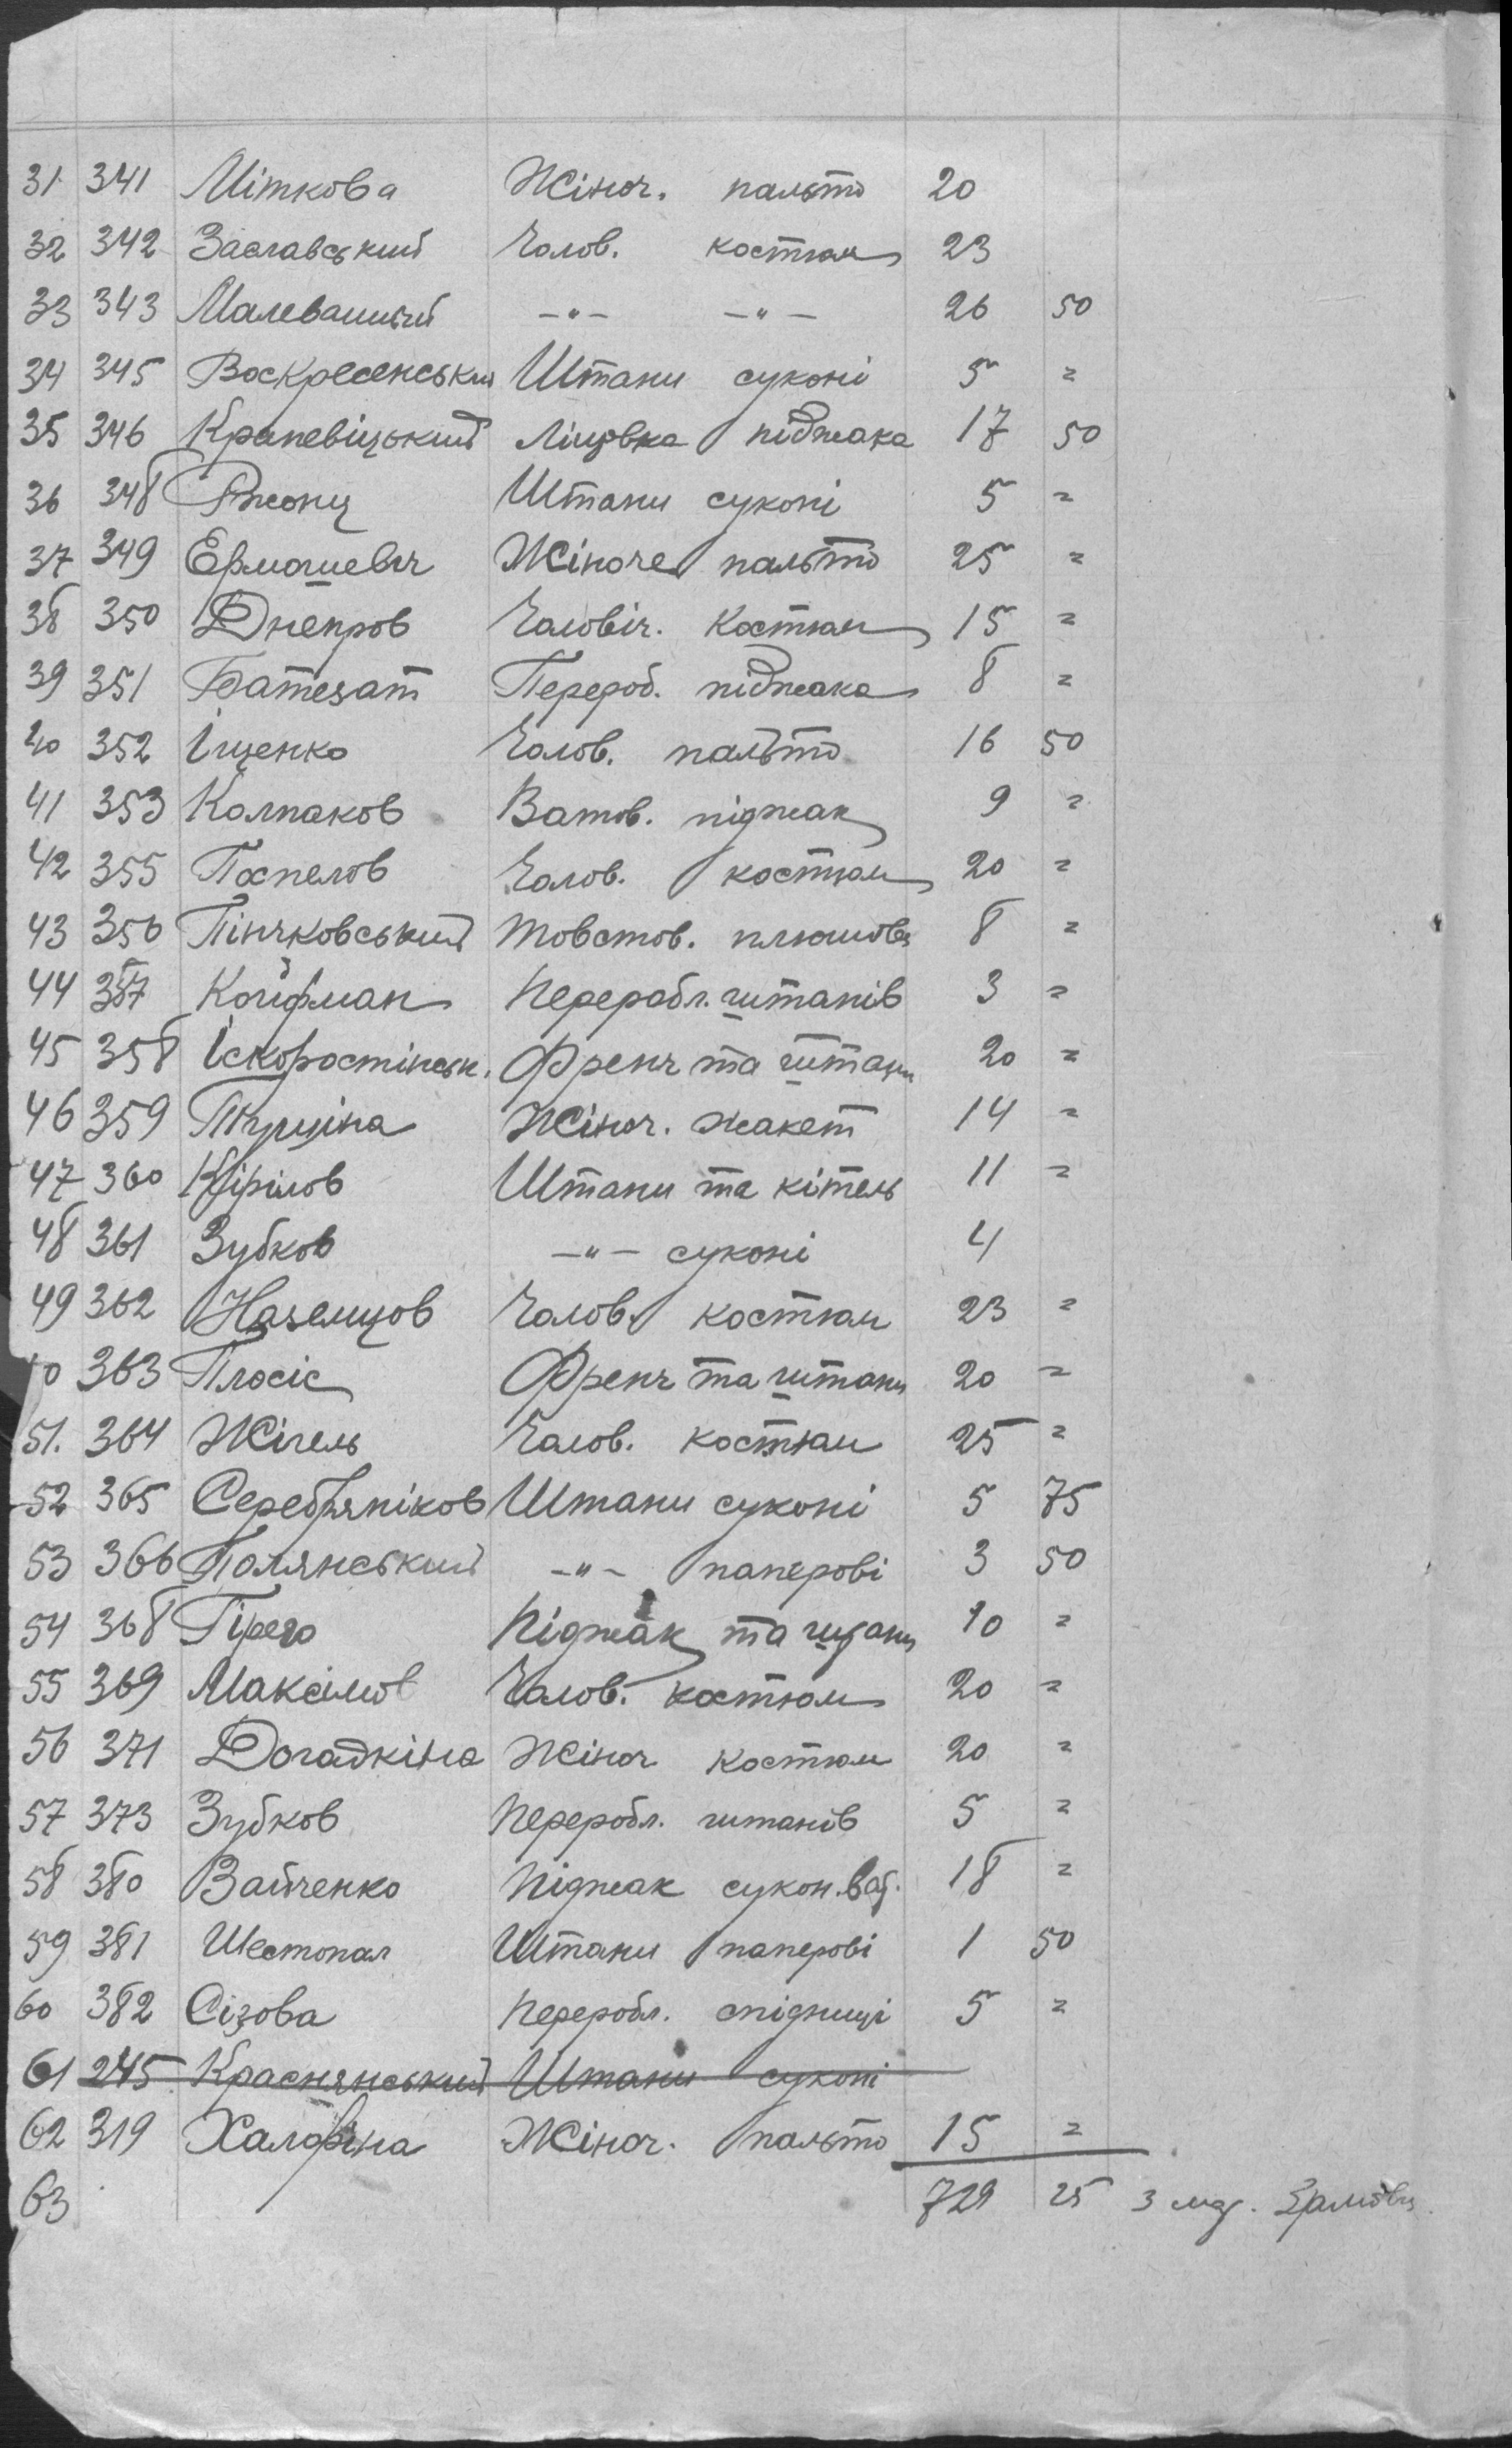 31 341 Міткова Жіноч. пальто 20
32 342 Заславський Чолов. костюм 23
33 343 Малеванний -"- -"- 26 50
34 345 Воскресенський Штани суконі 5 =
35 346 Крапевіцький Ліцовка піджака 17 50
36 348 Штани суконі 5 =
37 349 Ермошевіч Жіноче пальто 25 =
38 350 Днепров Чоловіч. Костюм 15 =
39 351 Перероб. піджака 8 =
40 352 Іщенко Чолов. пальто 16 50
41 353 Колпаков Ватов. піджак 9 =
42 355 Поспелов Чолов. костюм 20 =
43 356 Пінчковський товстов. плюшов 8 =
44 357 Койфман Переробл. штанів 3 =
45 358 Іскоростінськ. Френч та штани 20 =
46 359 Жіноч. жакет 14 =
47 360 Кірілов Штани та кітель 11 =
48 361 Зубков -"- суконі 4
49 362 Наземцов Чолов. костюм 23 =
50 363 Плосіс Френч та штани 20 =
51. 364 Жігель Чолов. костюм 25 =
52 365 Серебряніков Штани суконі 5 75
53 366 Полянський -"- паперові 3 50
54 368 Піджак та штани 10 =
55 369 Максімов Чолов. костюм 20 =
56 371 Догадкіна Жіноч костюм 20 =
57 373 Зубков Переробл. штанів 5 =
58 380 Вайченко Піджак сукон. ват. 18 =
59 381 Шестопал Штани паперові 1 50
60 382 Сізова Переробл. спідниці 5 =
61 245 Краснянський Штани суконі
62 319 Халофіна Жіноч. пальто 15 =
63 729 25 з